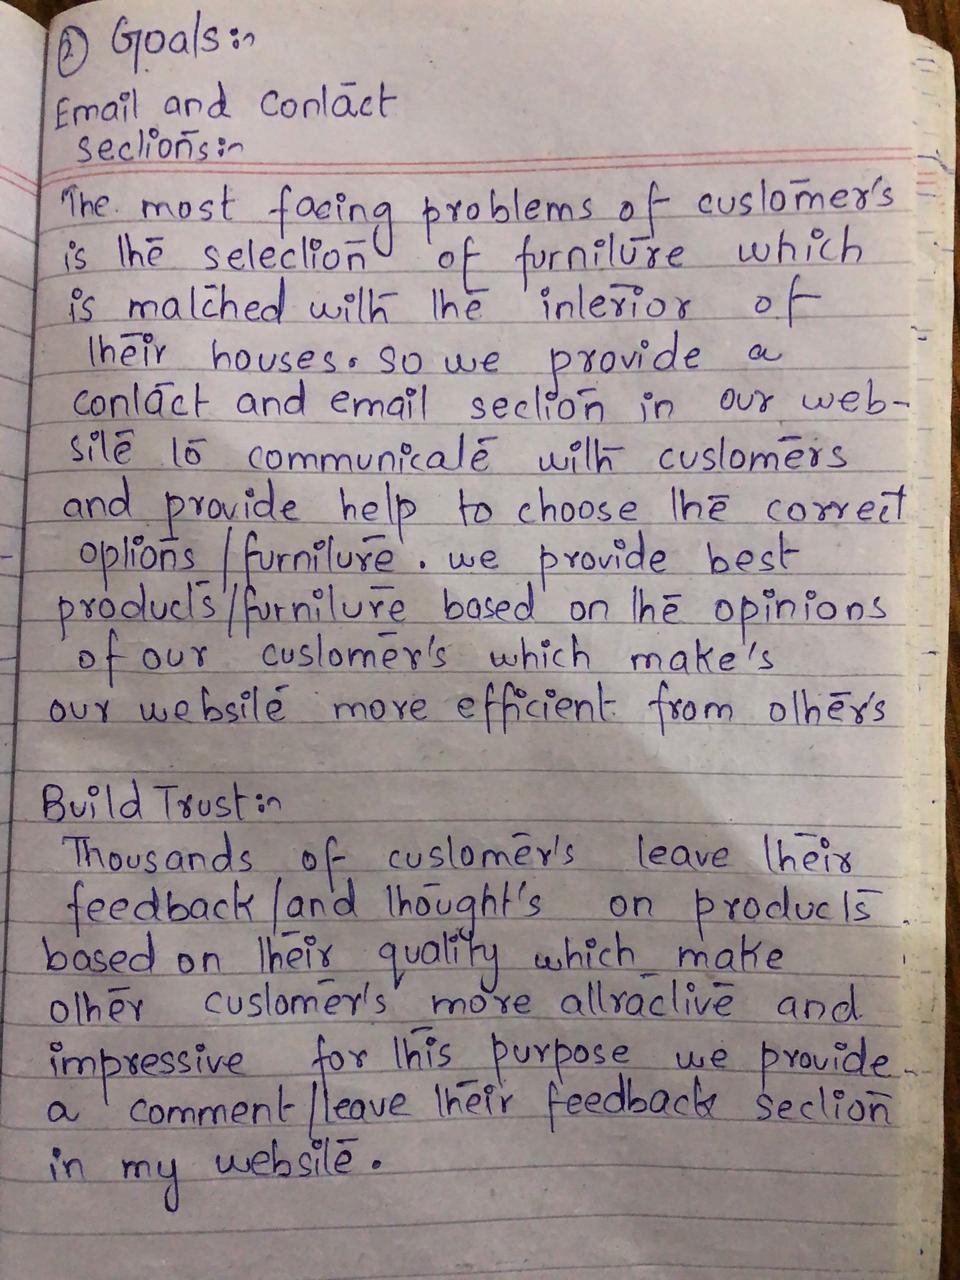 ② Goals:~
Email and Contact
Sections:~
The most facing problems of customer's
is the selection of furniture which
is matched with the interior of
their houses. So we provide a
contact and email section in our web-
site to communicate with customers
and provide help to choose the correct
options / furniture. we provide best
products / furniture based on the opinions
of our customer's which make's
our website more efficient from other's
Build Trust:~
Thousands of customer's leave their
feedback / and thought's on products
based on their quality which make
other customer's more attractive and
impressive for this purpose we provide
a comment / leave their feedback section
in my website.